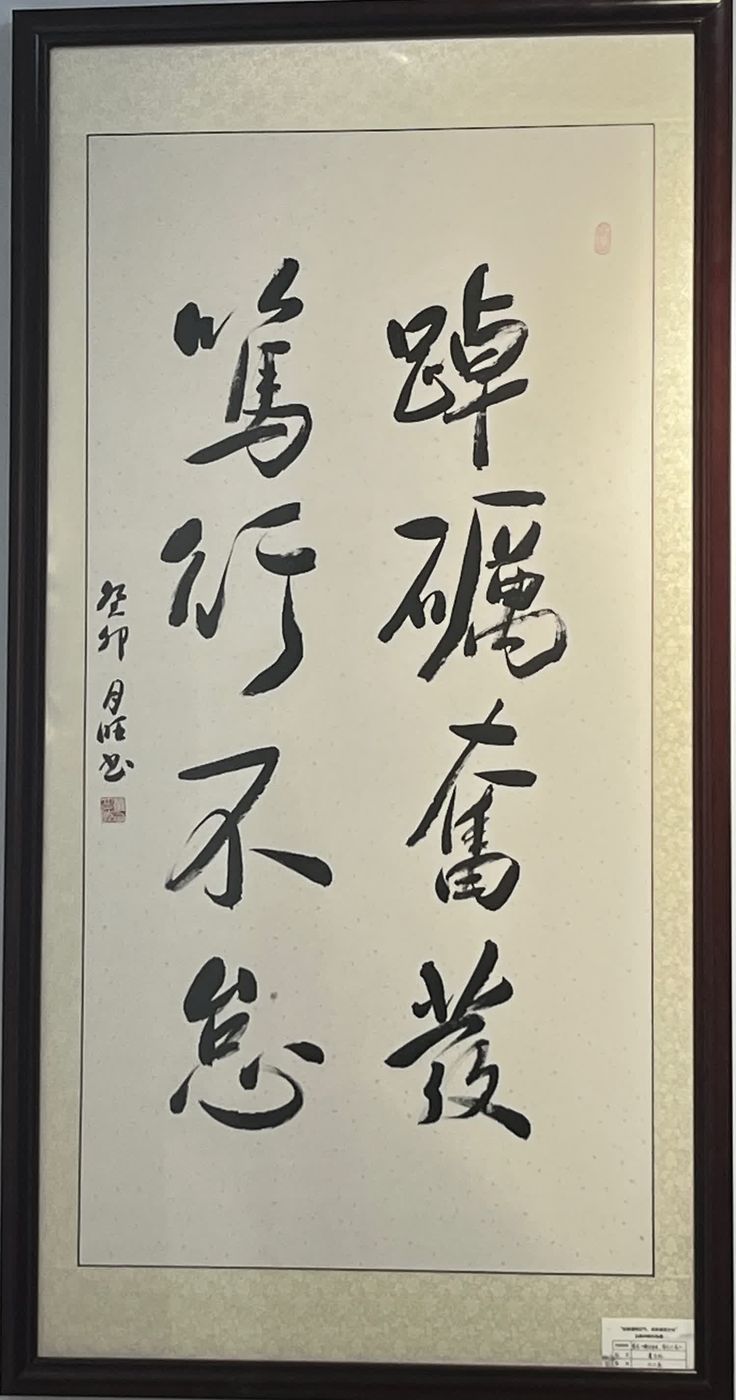 踔礪奮發
篤行不怠
癸卯 月旺书